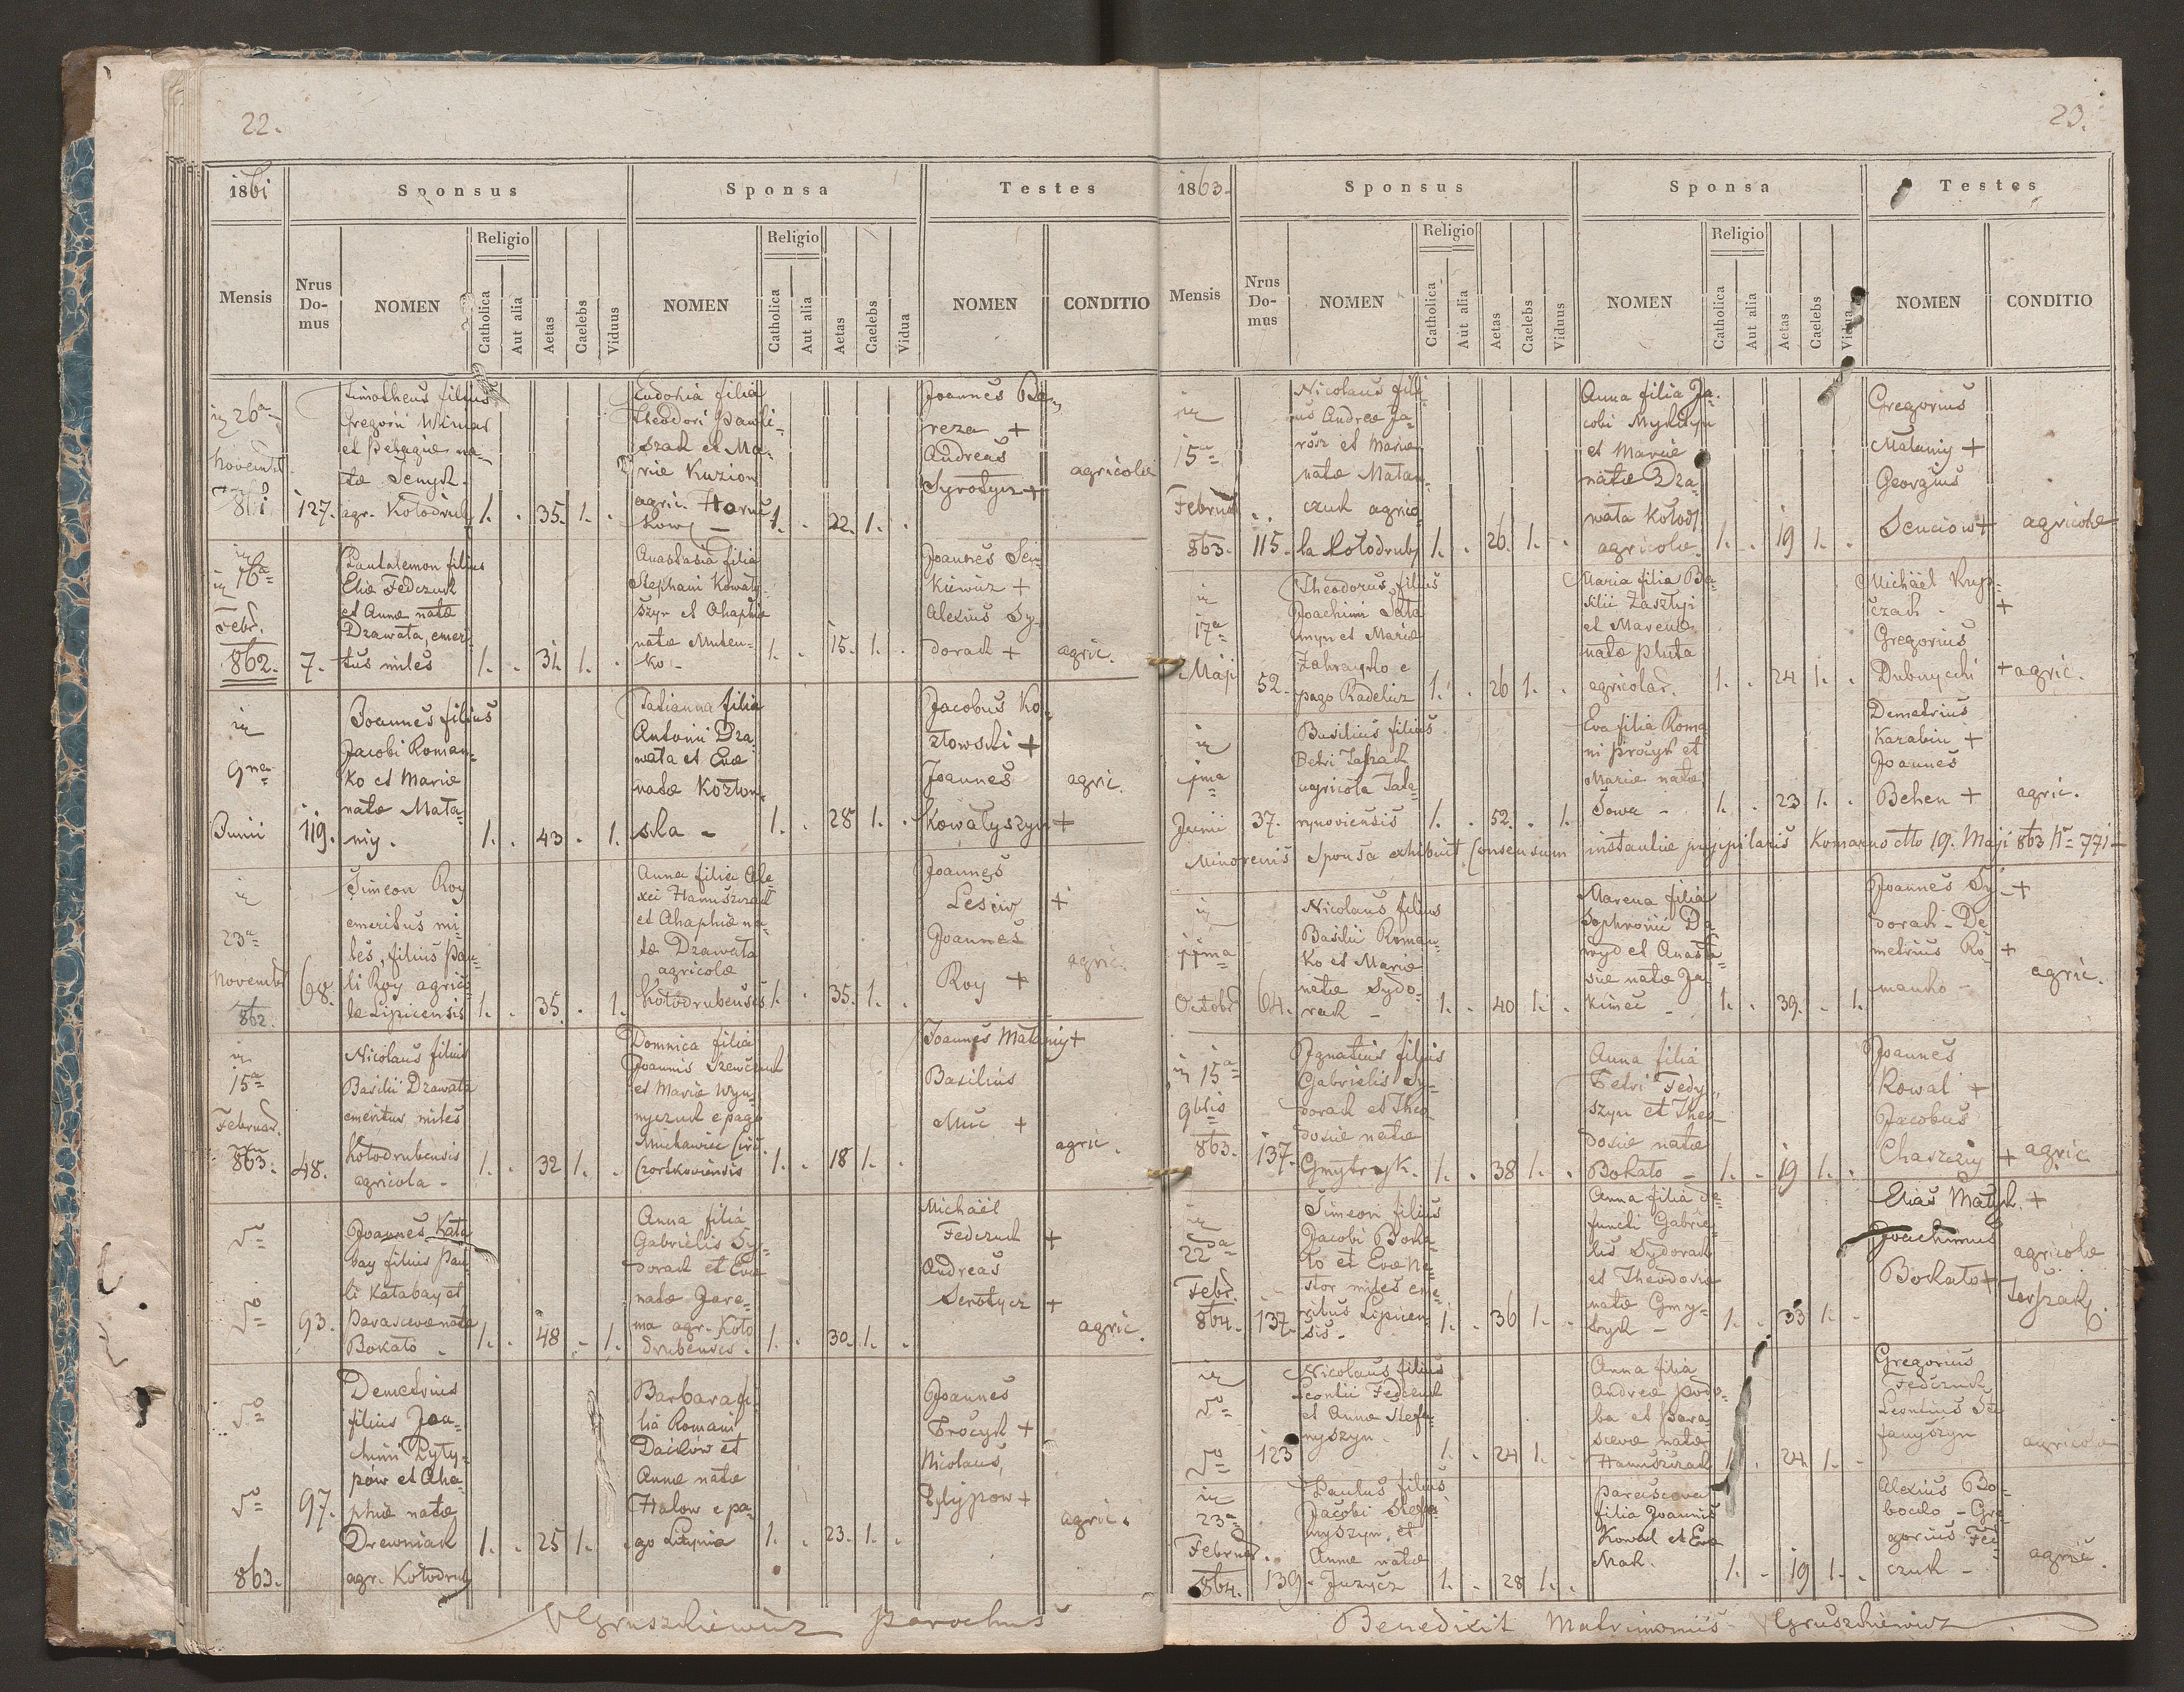 22.
1861 Sponsus Sponsa Testes
Mensis
Nrus Do- mus
NOMEN
Religio
Catholica
Aut alia
Aetas
Caelebs
Viduus
NOMEN
Religio
Catholica
Aut alia
Aetas
Caelebs
Vidua
NOMEN
CONDITIO
26a
Novembr
861
127.
Timotheus filius
Gregorii
et Pelagiæ na-
tæ Senyk.
agr. Kołodruby
1. . 35. 1. .
Eudohia filia
Theodori Pawli-
szak et Ma-
riæ Kuzion
agric.
1. . 22. 1. .
Joannes Ba-
reza +
Andreas
Syrotycz +
agricolæ
16a
Febr.
862.
7.
Pantalemon filius
Eliæ Fedczuk
et Annæ natæ
Dzawata, emeri-
tus miles
1. . 31. 1. .
Anastasia filia
Stephani Kowaly-
szyn et Ahaphiæ
natæ Muzen-
ko -
1. . 15. 1. .
Joannes Sen-
kiewicz +
Alexius Sy-
dorak +
agric.
in
9na
Junii
119.
Joannes filius
Jacobi Roman-
ko et Mariæ
natæ Mała-
niy.
1. . 43 . 1.
Tatianna filia
Antonii Dza-
wała et Evæ
natæ Kozłow-
ska -
1. . 28 1. .
Jacobus Ko-
złowski +
Joannes
Kowałyszyn +
agric.
in
23a
Novembr
862.
68.
Simeon Roy
emeritus mi-
les, filius Pau-
li Roy agrico-
læ Lipicensis
1. . 35. . 1.
Anna filia Ale-
xei Hanuszczak
et Ahaphiæ na-
tæ Dzawała
agricolæ
Kołodrubensis
1. . 35. 1. .
Joannes
Lesiw +
Joannes
Roy +
agric.
in
15a
Februar.
863.
48.
Nicolaus filius
Basilii Dzawała
emeritus miles
Kołodrubensis
agricola -
1. . 32 1. .
Domnica filia
Joannis Szewczuk
et Mariæ Wyn-
nyczuk e pago
Michawiec Circ.
Czortkoviensis
1. . 18 1. .
Joannes Małaniy +
Basilius
Muc +
agric.
93.
Joannes Kata-
bay filius Pau-
li Katabay et
Parascevæ natæ
Bokało -
1. . 48 - 1.
Anna filia
Gabrielis Sy-
dorak et Evæ
natæ Jare-
ma agr. Koło
drubenses.
1. . 30. 1. .
Michaël
Fedczuk +
Andreas
Serotycz +
agric.
863.
97.
Demetrius
filius Joa-
chimi Pyły-
pów et Aha-
phiæ natæ
Drewniak
agr. Kołodruby
1. . 25 1. .
Barbara fi-
lia Romani
Daćków et
Annæ natæ
Hałow e pa-
go Litynia
1. . 23. 1. .
Joannes
Procyk +
Nicolaus
Pyłypow +
agric.
Gruszkiewicz parochus
23.
1863. Sponsus Sponsa Testes
Mensis
Nrus Do- mus
NOMEN
Religio
Catholica
Aut alia
Aetas
Caelebs
Viduus
NOMEN
Religio
Catholica
Aut alia
Aetas
Caelebs
Vidua
NOMEN
CONDITIO
in
15a
Februar
863.
115.
Nicolaus fili-
us Andreæ Ja-
rosz et Mariæ
natæ Matan-
czuk agrico-
la Kołodruby
1. . 26. 1. .
Anna filia Ja-
cobi Mykityn
et Mariæ
natæ Dza-
wała Kołod.
agricolæ.
1. . 19 1. .
Gregorius
Małaniy +
Georgius
Senciow +
agricolæ
in
17a
Maji
52.
Theodorus filius
Joachimi Sała
myn et Mariæ
Zahrayko e
pago Radelicz
1. . 26 1. .
Maria filia Ba-
silii Zasztyi
et Marenæ
natæ Pluta
agricolar.
1. . 24 1. .
Michäel Kup-
czak - +
Gregorius
Dubnycki +
agric.
in
1ma
Junii
37.
Basilius filius
Petri
agricola Tate-
rynoviensis
1. . 52. . 1.
Eva filia Roma
ni Procyk et
Mariæ natæ
Sowa -
1. . 23 1. .
Demetrius
Karabin +
Joannes
Behen +
agric.
Minorenis Sponsa exhibuit Consensum instantiæ pupilaris Komarno dto 19. Maji 863 Nr 771
in
11ma
Octobr
64.
Nicolaus filius
Basilii Roman-
ko et Mariæ
natæ Sydo-
rak -
1. . 40 1. .
Marena filia
Sophronii Da-
wyd et Anasta-
siæ natæ Ja-
kimec -
1. . 39. . 1.
Joannes Sy- +
dorak - De-
metrius Ro- +
manko -
agric.
in 15a
9bris
863.
137.
Ignatius filius
Gabrielis Sy-
dorak et Theo-
dosiæ natæ
Gmytryk.
1. . 38 1. .
Anna filia
Petri Fedy-
szyn et Theo-
dosiæ natæ
Bokało -
1. . 19 1. .
Joannes
Kowal +
Jacobus
Chaszczy +
agric
in
22da
Febr.
864.
137.
Simeon filius
Jacobi Boka-
ło et Evæ Ne-
stor miles eme-
ritus Lipicen-
sis -
1. . 36 1. .
Anna filia de-
functi Gabrie-
lis Sydorak
et Theodosiæ
natæ Gmy-
tryk -
1. . 33 1. .
Elias Małyk. +
Joachimus
Bokało +
agricolæ
in
123
Nicolaus filius
Leontii Fedczuk
et Annæ Stefa-
nyszyn -
1. . 24 1. .
Anna filia
Andreæ Podo-
ba et Para
scevæ natæ
Hanuszczak
1. . 24. 1. -
Gregorius
Fedczuk
Leontius Ste
fanyszyn
agricolæ
in
23a
Februar.
864.
139.
Paulus filius
Jacobi Stefa-
nyszyn et
Annæ natæ
Juzycz
1. . 28 1. .
Parasceva
filia Joannis
Kowal et Evæ
Mak.
1. - 19 1. .
Alexius Bo-
boczko - Gre-
gorius Fed-
czuk -
agric.
Benedixit Matrimoniis Gruszkiewicz